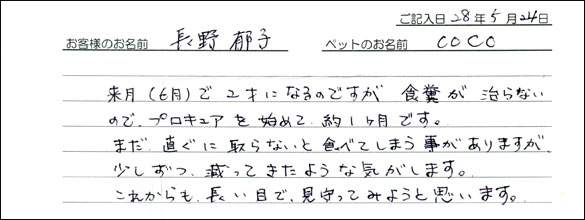 ご記入日 28年 5月 24日
お客様のお名前 長野 郁子 ペットのお名前 COCO
来月(6月)で 2才に なるのですが 食糞が 治らない
ので、プロキュア を 始めて、約1ヶ月です。
まだ、直ぐに 取らないと 食べてしまう 事が ありますが、
少しずつ、減って きたような 気がします。
これからも、長い目で、見守って みようと 思います。